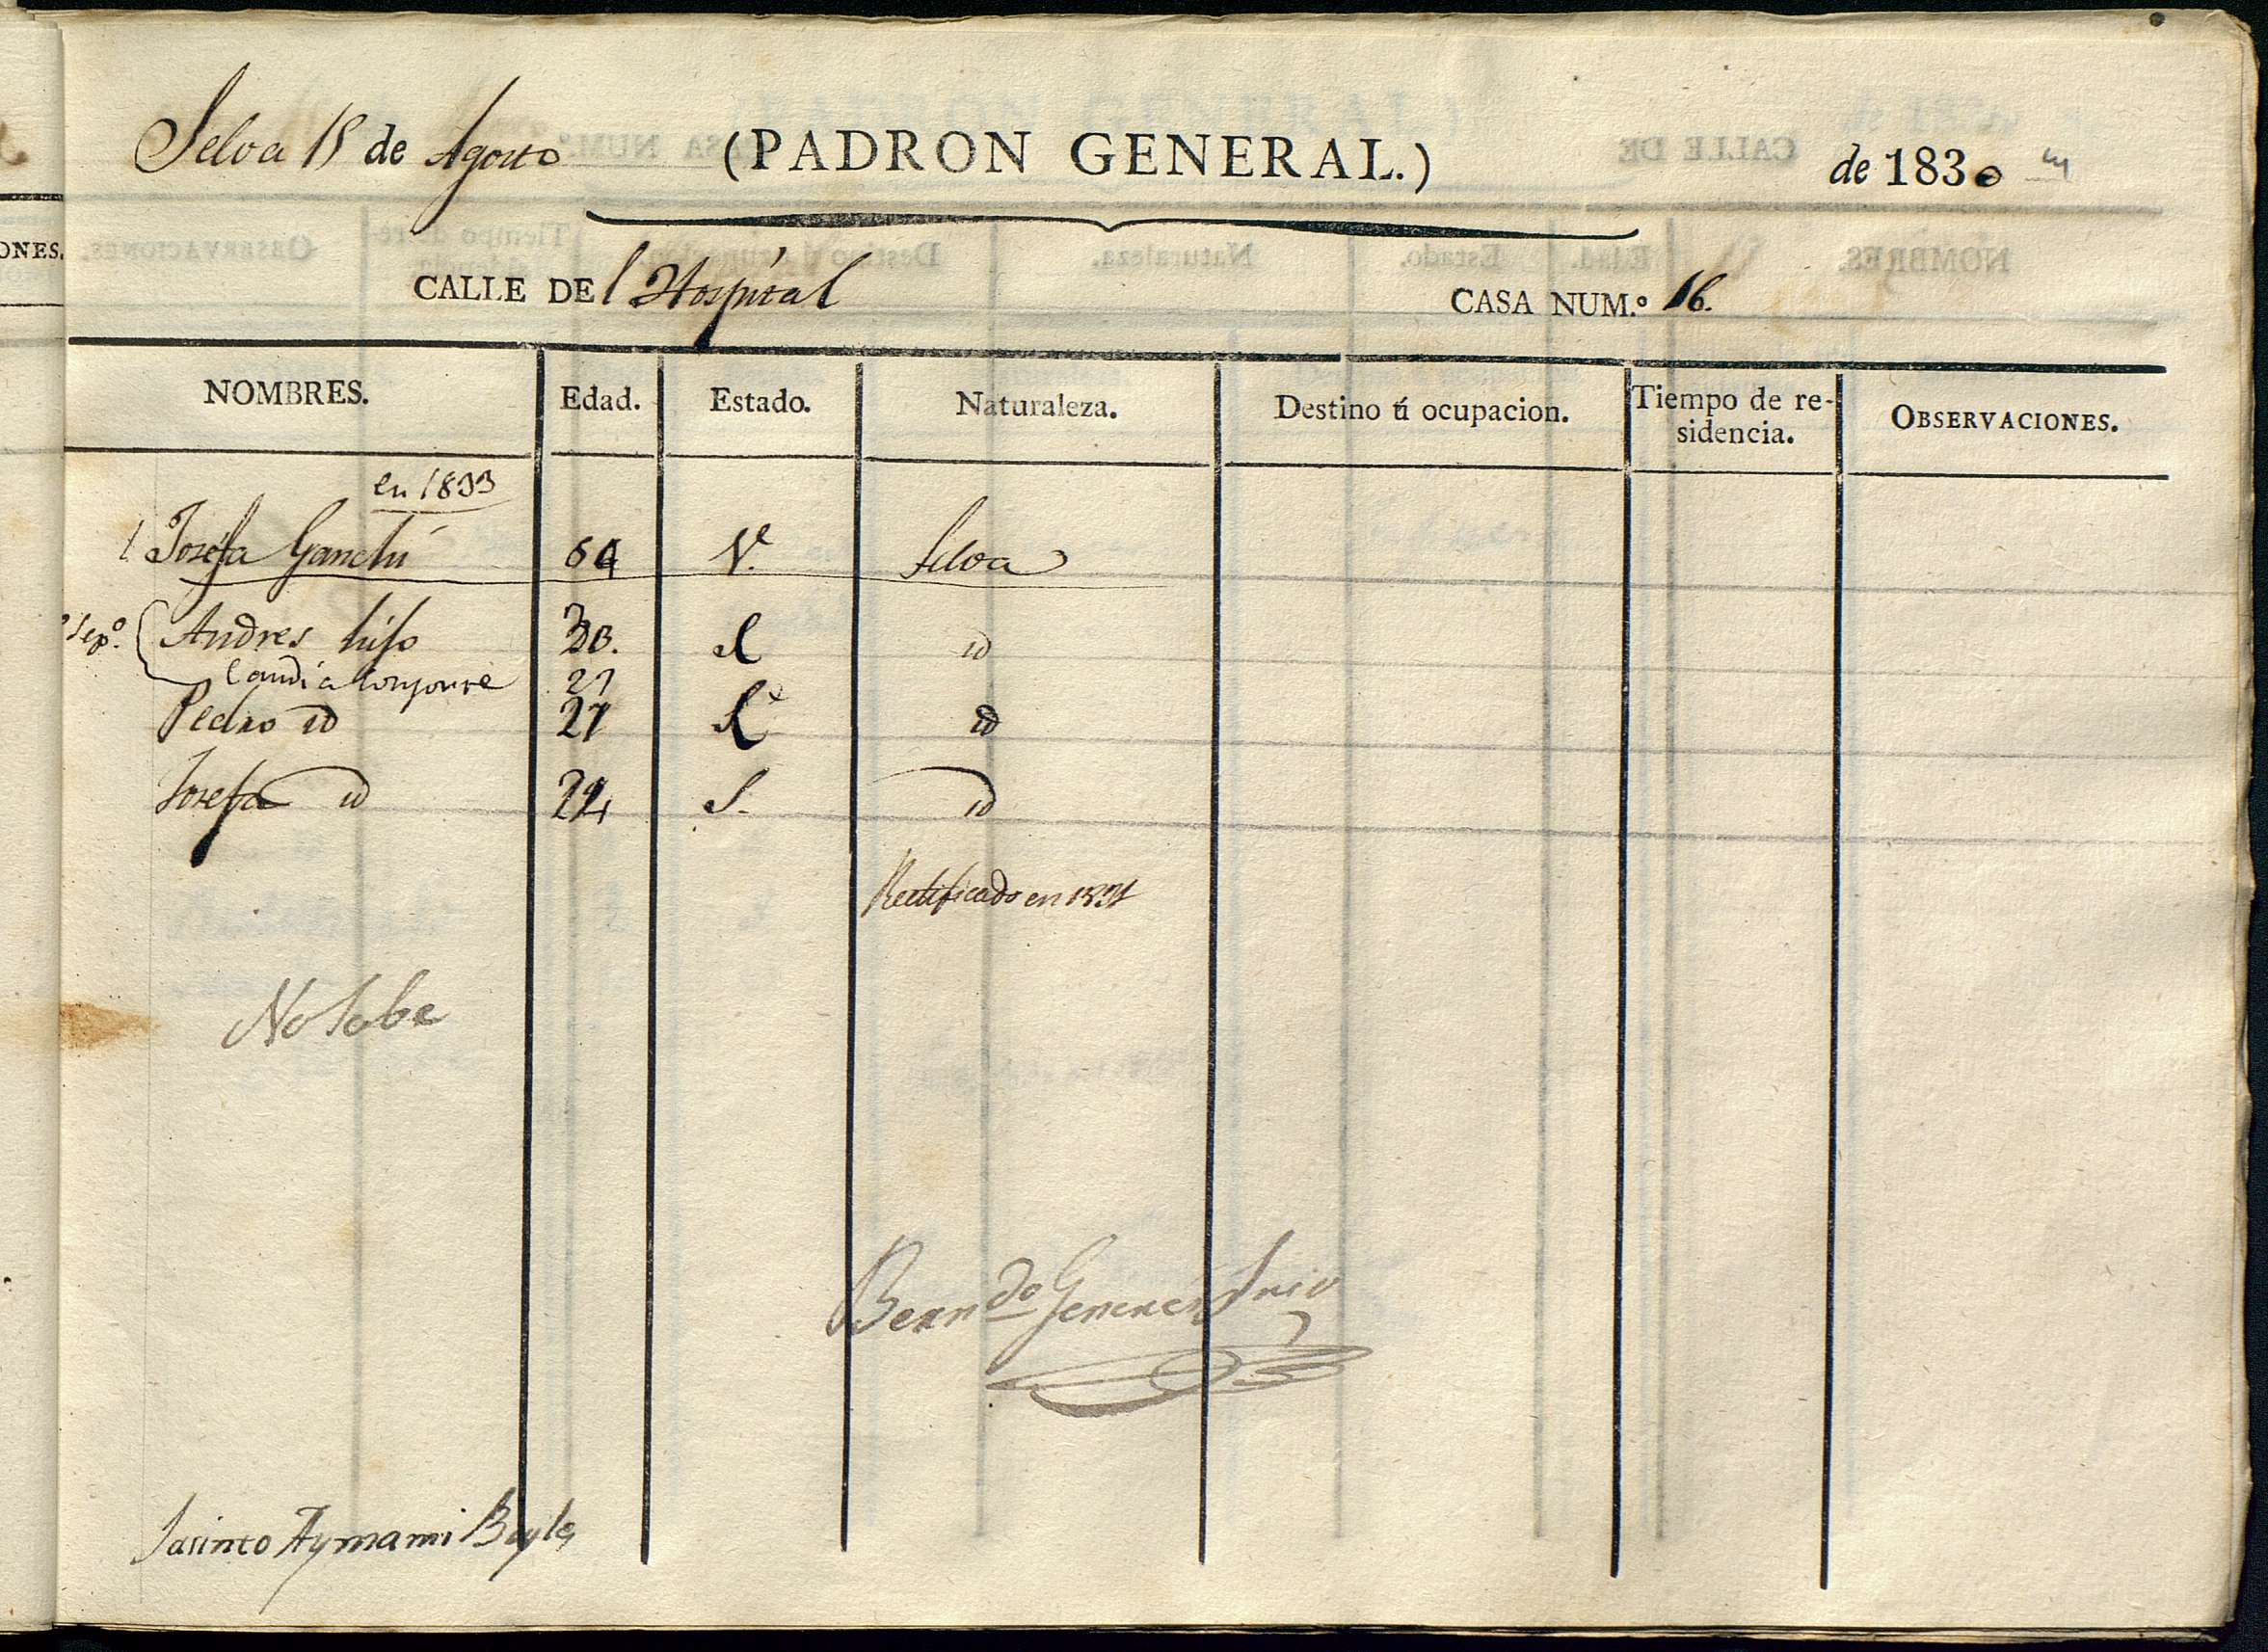 Selva 15 de Agosto (PADRON GENERAL.) de 1830
CALLE DE l Hospital CASA NUM.º 16.
NOMBRES. Edad. Estado. Naturaleza. Destino ú ocupacion. Tiempo de re-sidencia. OBSERVACIONES.
en 1833
1 Josefa Ganchú 64 V.ª Selva
Andres hijo 30. id
consorte 21
Pedro id 27 id
Josefa id 24 S. id
Rectificado en 1831
No Sabe
Bern.do Srio
Jacinto Aymami Bayle
ONES.